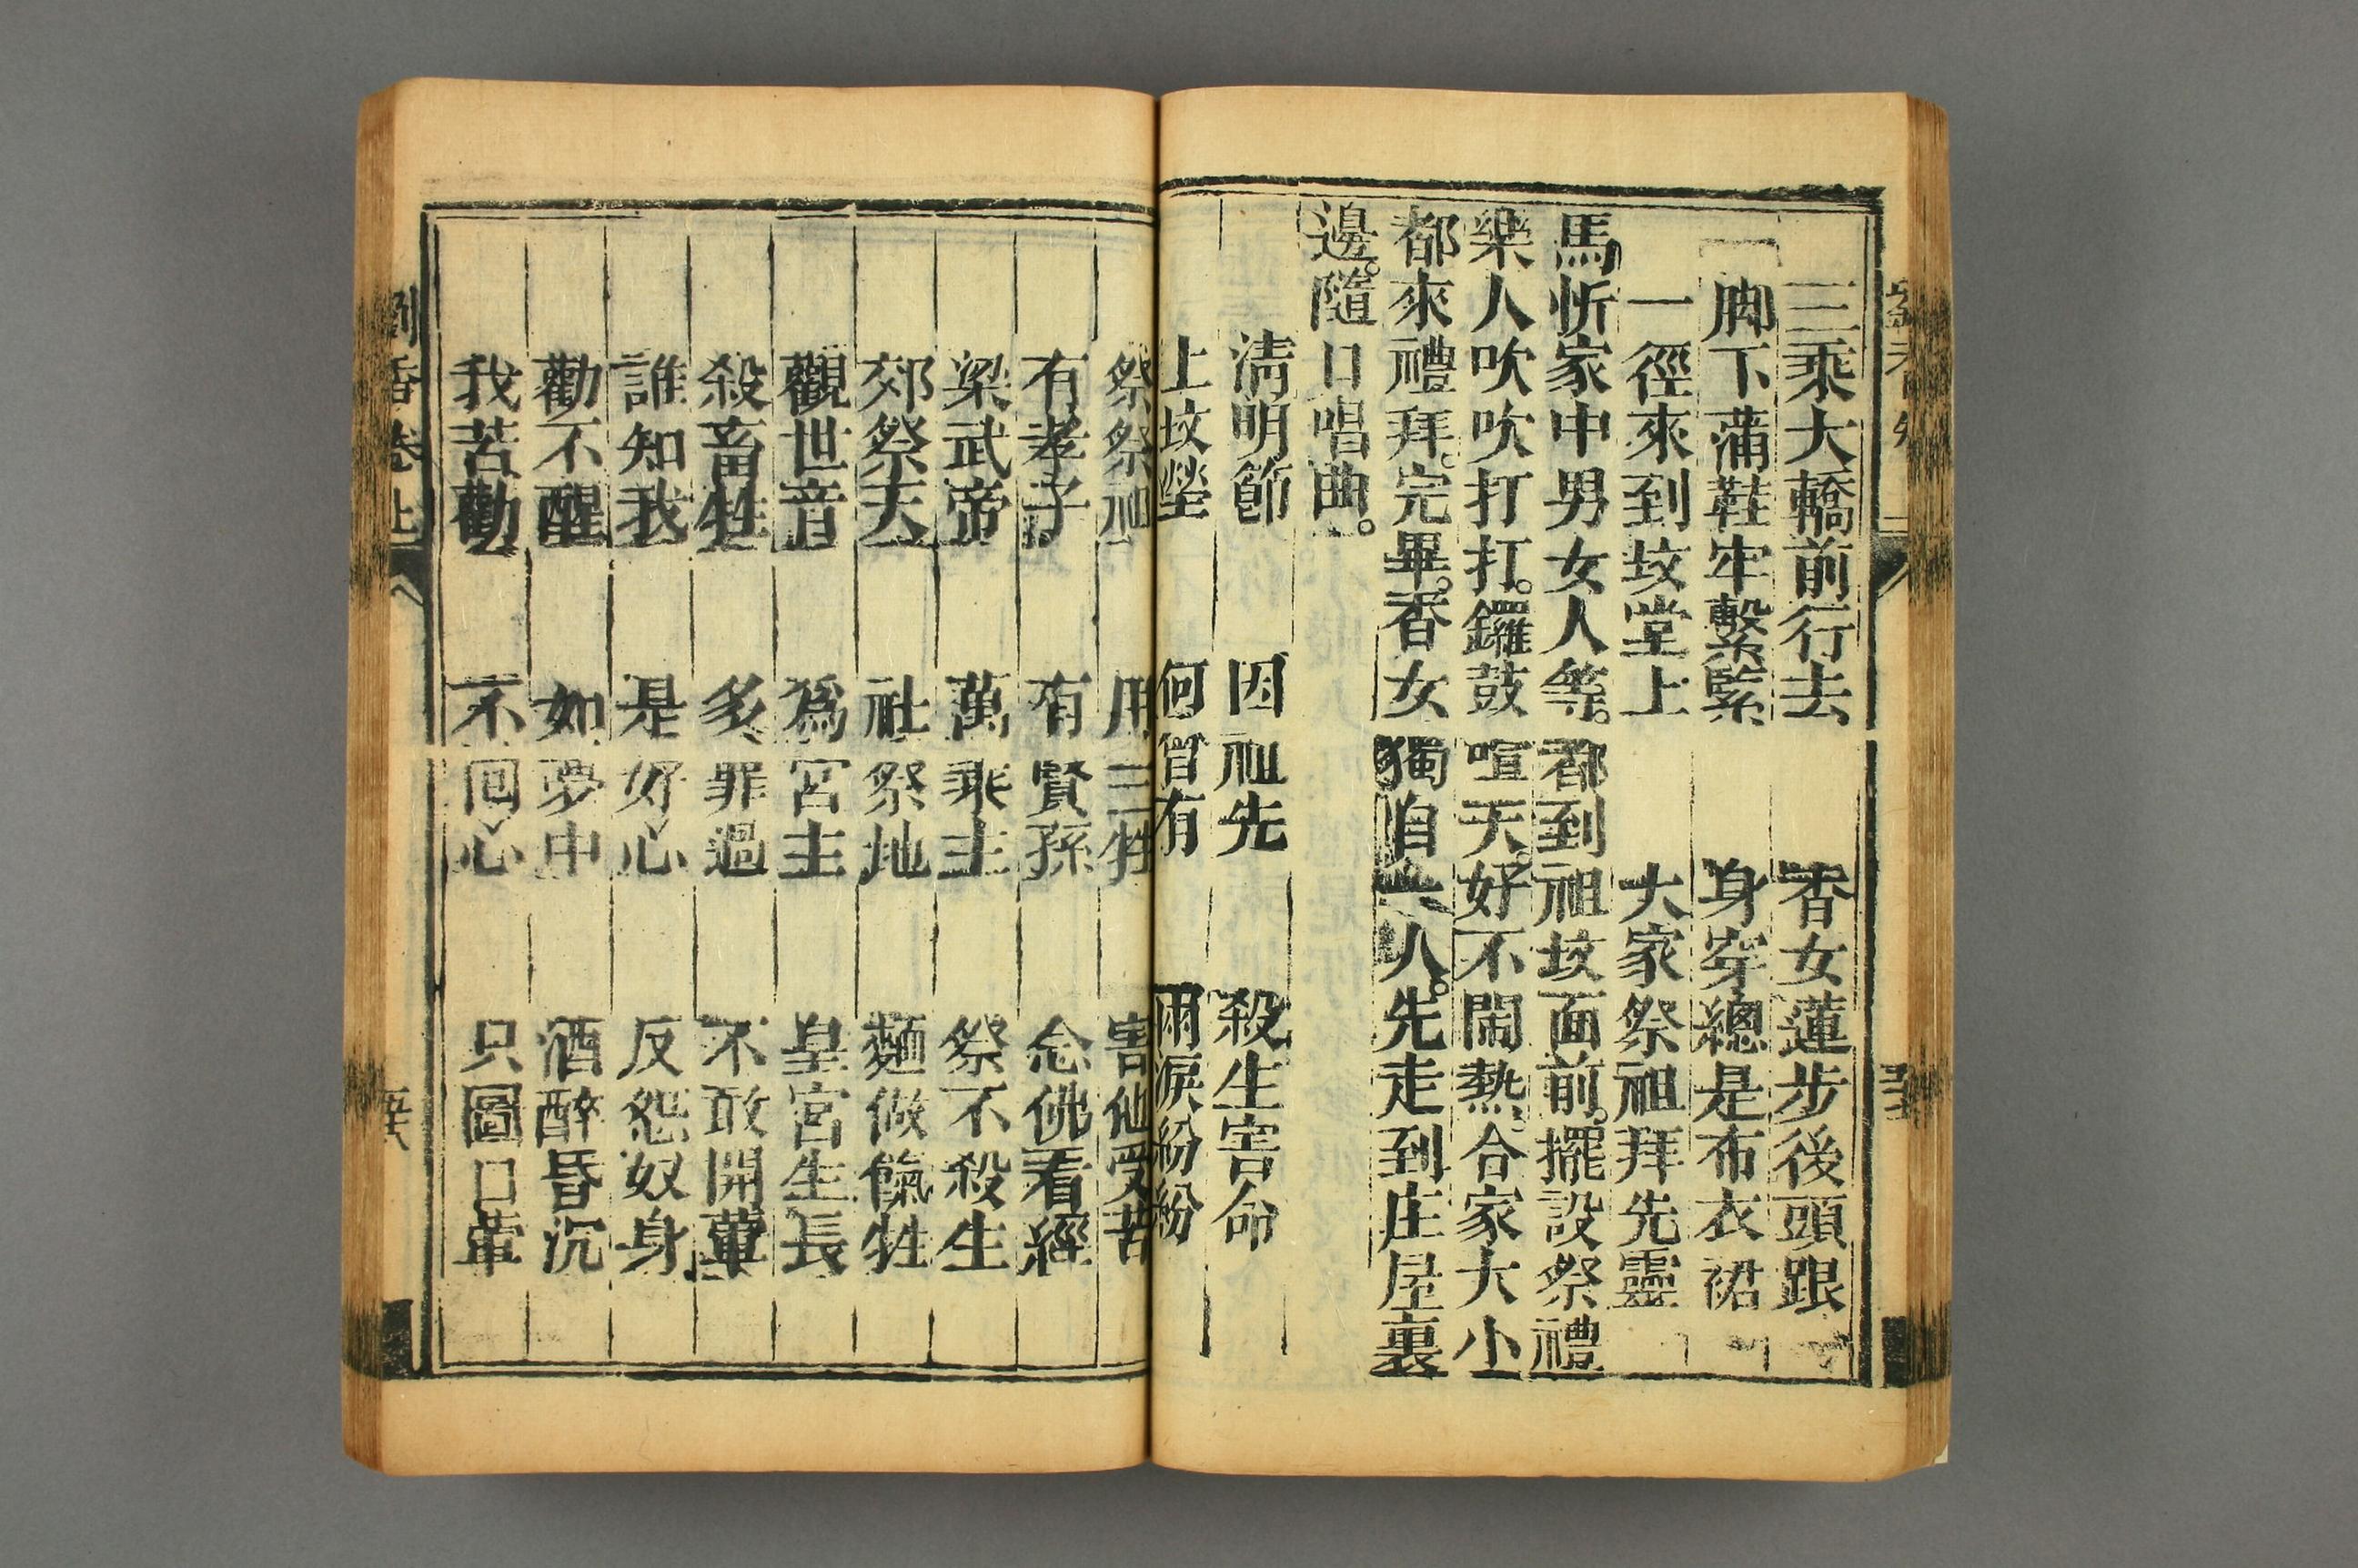 三乘大轎前行去　香女蓮步後頭跟
脚下蒲鞋牢繫緊　身穿總是布衣裙
一徑來到坟堂上　大家祭祖拜先靈
馬忻家中男女人等。都到祖坟面前。擺設祭禮
樂人吹吹打打。鑼鼓喧天。好不閙熱、合家大小
都來禮拜。完畢。香女獨自一人。先走到庄屋裏
邊。隨口唱曲。
淸明節　因祖先　殺生害命
上坟塋　何曾有　兩淚紛紛
祭祭祖　用三牲　害他受苦
有孝子　有賢孫　念佛看經
梁武帝　萬乘主　祭不殺生
郊祭天　社祭地　麵做餼牲
觀世音　爲宮主　皇宮生長
殺畜牲　多罪過　不敢開葷
誰知我　是好心　反怨奴身
勸不醒　如夢中　酒醉昏沉
我苦勸　不回心　只圖口葷
劉香卷上